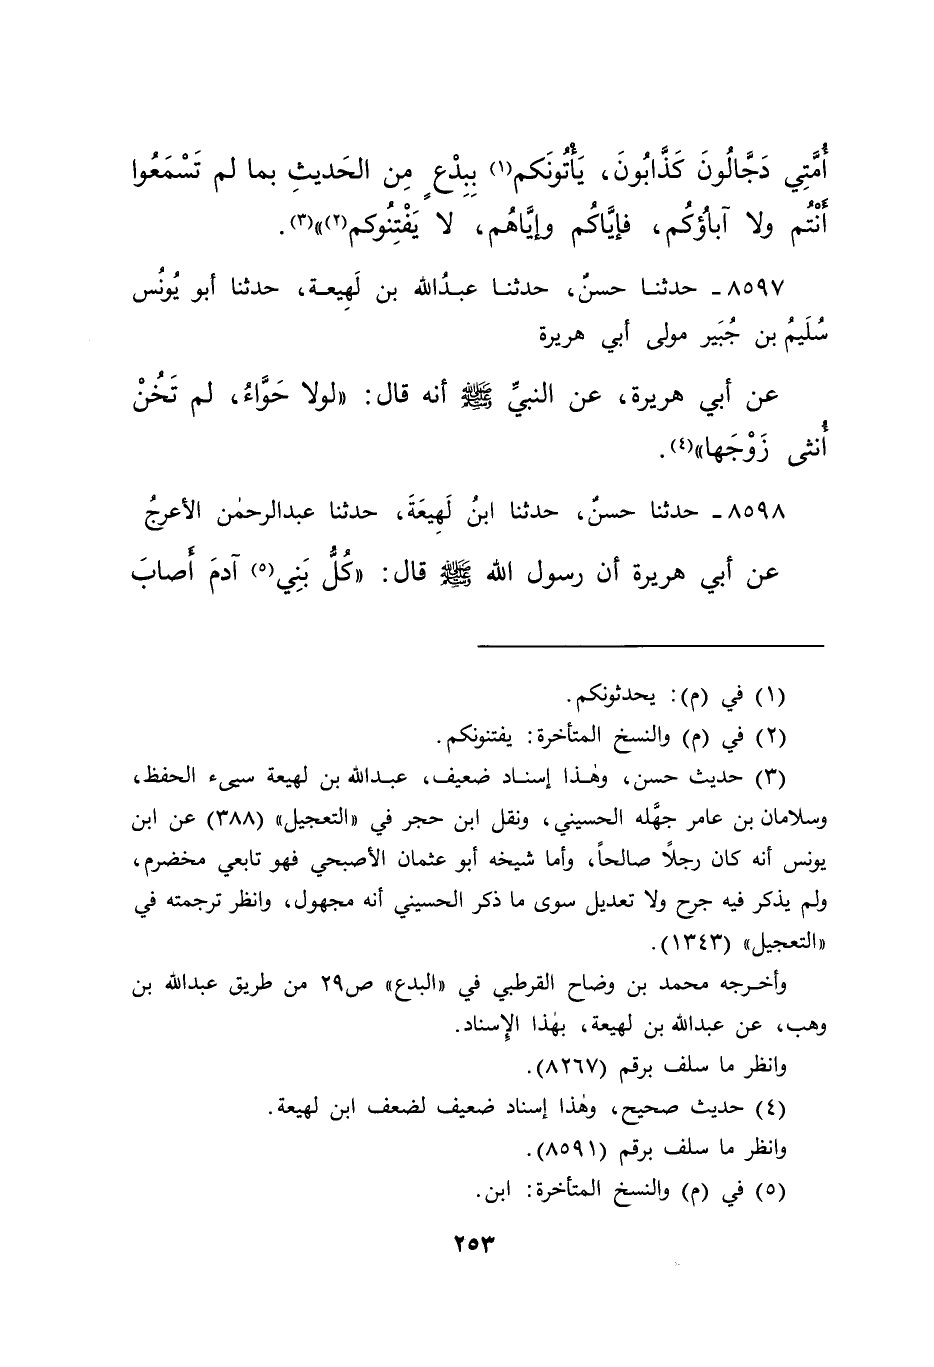 أُمَّتِي دَجَّالُونَ كَذَّابُونَ، يَأْتُونَكم(١) بِبِدْعٍ مِن الحَديثِ بما لم تَسْمَعُوا
أَنْتُم ولا آباؤُكُم، فإيَّاكُم وإيَّاهُم، لا يَفْتِنُوكم(٢)»(٣).
٨٥٩٧ـ حدثنا حسنٌ، حدثنا عبدُالله بن لَهِيعة، حدثنا أبو يُونُس
سُلَيمُ بن جُبَير مولى أبي هريرة
عن أبي هريرة، عن النبيِّ ﷺ أنه قال: «لولا حَوَّاءُ، لم تَخُنْ
أُنثى زَوْجَها»(٤).
٨٥٩٨ـ حدثنا حسنٌ، حدثنا ابنُ لَهِيعَةَ، حدثنا عبدالرحمٰن الأعرجُ
عن أبي هريرة أن رسول الله ﷺ قال: «كُلُّ بَنِي(٥) آدمَ أَصابَ
(١) في (م): يحدثونكم.
(٢) في (م) والنسخ المتأخرة: يفتنونكم.
(٣) حديث حسن، وهٰذا إسناد ضعيف، عبدالله بن لهيعة سيىء الحفظ،
وسلامان بن عامر جهَّله الحسيني، ونقل ابن حجر في «التعجيل» (٣٨٨) عن ابن
يونس أنه كان رجلاً صالحاً، وأما شيخه أبو عثمان الأصبحي فهو تابعي مخضرم،
ولم يذكر فيه جرح ولا تعديل سوى ما ذكر الحسيني أنه مجهول، وانظر ترجمته في
«التعجيل» (١٣٤٣).
وأخرجه محمد بن وضاح القرطبي في «البدع» ص٢٩ من طريق عبدالله بن
وهب، عن عبدالله بن لهيعة، بهٰذا الإِسناد.
وانظر ما سلف برقم (٨٢٦٧).
(٤) حديث صحيح، وهٰذا إسناد ضعيف لضعف ابن لهيعة.
وانظر ما سلف برقم (٨٥٩١).
(٥) في (م) والنسخ المتأخرة: ابن.
٢٥٣